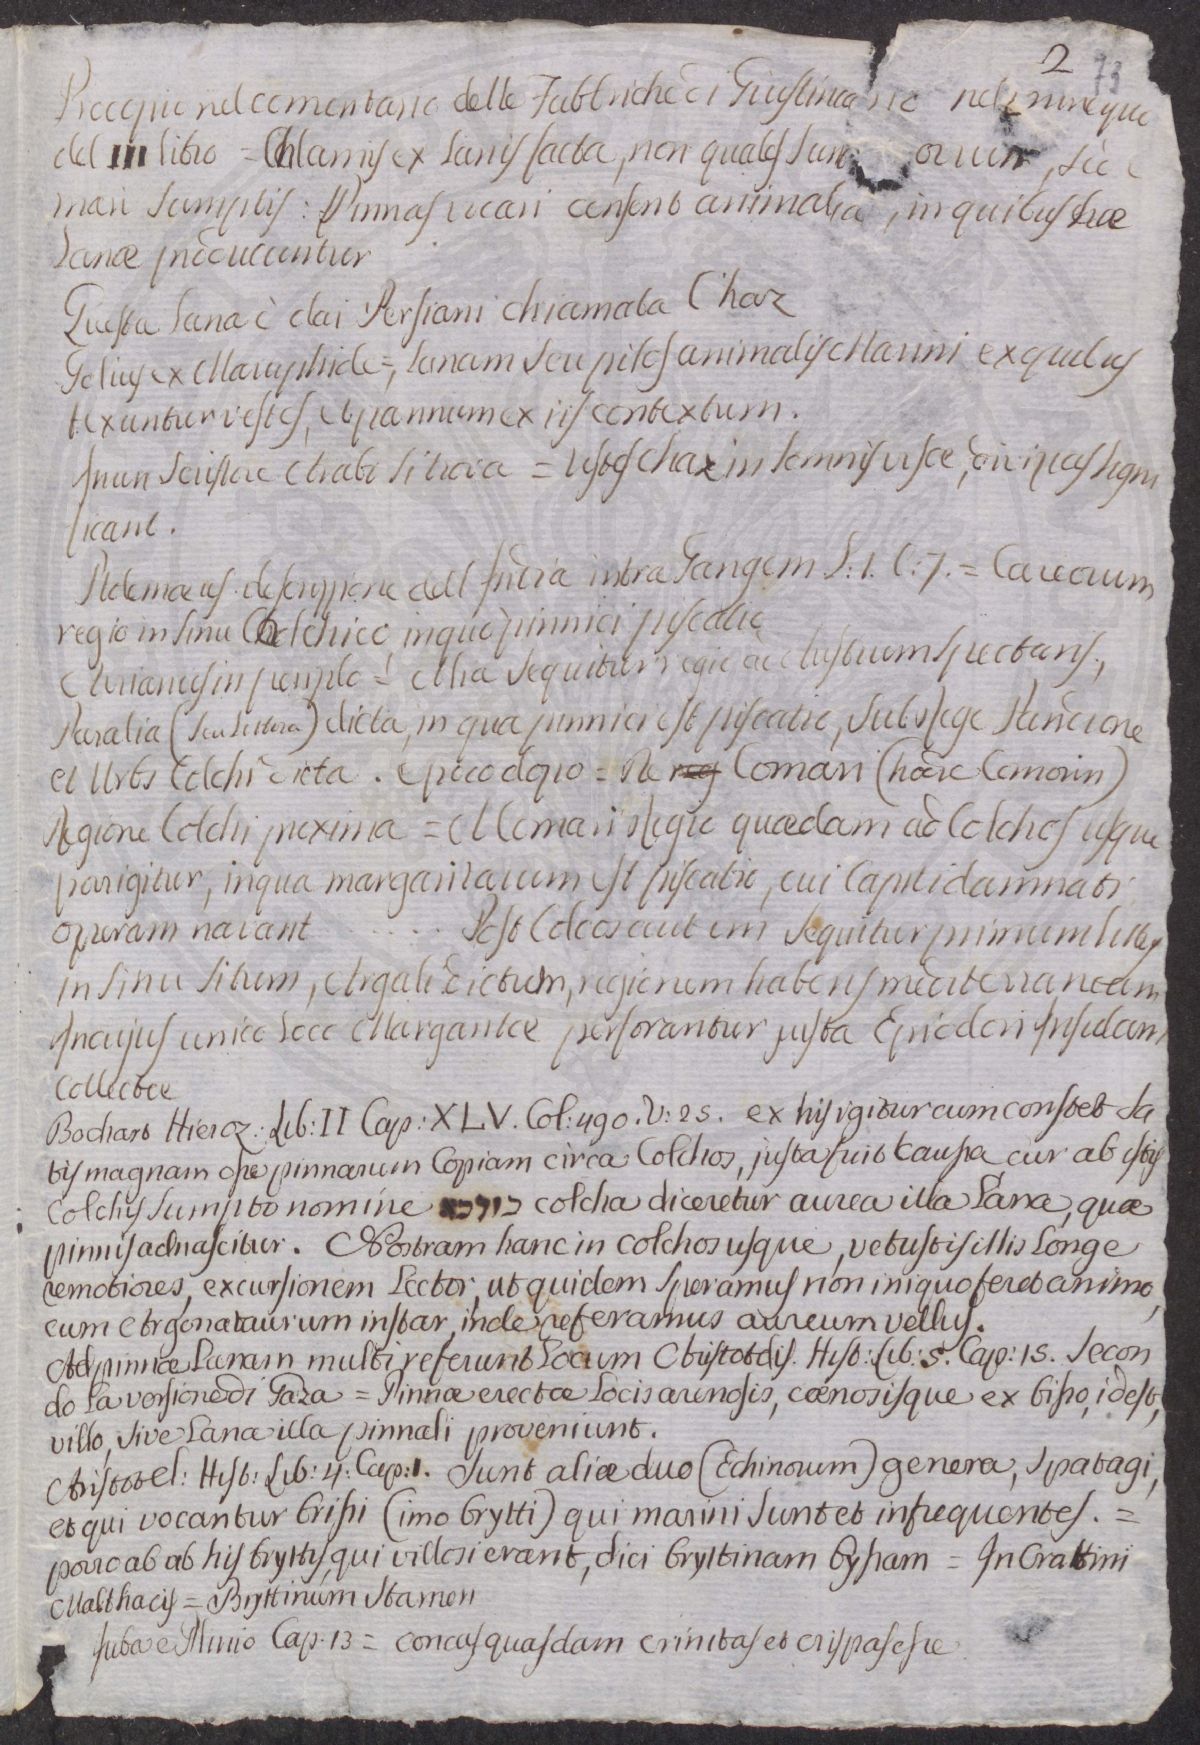 2 73
Procopio nel comentario delle Fabbriche di Giustiniano nel
del III libro = Chlamis ex lanis facta, non quales sunt ovium, sed e
mari sumptis: Pinnas vocari censent animalia, in quibus hae
lanae producuntur
Questa lana è dai Persiani chiamata Chaz
Golius ex Maruphide =, lanam seu pilos animalis Marini ex quibus
texuntur vestes, et pannum ex iis contextum.
In un Scrittore Arabo si trova = Vestes chaz in somnis visae, divitias signi
ficant.
Ptolemaeus descrizzione dell India intra Gangem L: 1. C: 7. = Careorum
regio in sinu Colchico in quo pinnici piscatio
Arianus in periplo = Alia sequitur regio ad Austrum spectans,
Paralia (seu littora) dicta, in qua pinnici est piscatio, sub Rege Pandione
et Urbs Colchi dicta. e poco dopo = De reg Comari (hodie Comorin)
Regione Colchi proxima = A Comari Regio quaedam ad Colchos usque
porrigitur, in qua margaritarum est piscatio, cui Capiti damnati
operam navant ..... Post Colcos autem sequitur primum littus
in sinu situm, Argali dictum, regionem habens mediterraneam
In cujus unico loco Margaritae perforantur justa Epiodori Insulam
Collectae
Bochart Hieroz: Lib: II Cap: XLV. Col: 490. V: 25. ex his igitur cum constet sa
tis magnam ope pinnarum Copiam circa Colchos, justa fuit Causa cur ab istis
Colchis sumpto nomine כולכא colcha diceretur aurea illa Lana, quae
pinnis adnascitur. Nostram hanc in colchos usque, vetustis illis Longe
remotiores, excursionem Lector, ut quidem speramus non iniquo feret animo,
cum Argonautarum instar, inde referamus aureum vellus.
Ad pinnae Lanam multi referunt Locum Aristotelis. Hist: Lib: 5. Cap: 15. secon
do la versione di Gaza = Pinnae erectae Locis arenosis, coenosisque ex bisso, idest,
villo, sive Lana illa pinnali proveniunt.
Aristotel: Hist: Lib: 4: Cap: 1. Sunt aliae duo (Echinorum) genera, spatagi,
et qui vocantur brissi (imo brytti) qui marini sunt et infrequentes. =
porro ab his bryttis, qui villosi erant, dici bryttinam byssum = In Crattini
Malthacis = Bryttinum stamen
Juba e Plinio Cap. 13 = concas quasdam crinitas et crispas esse